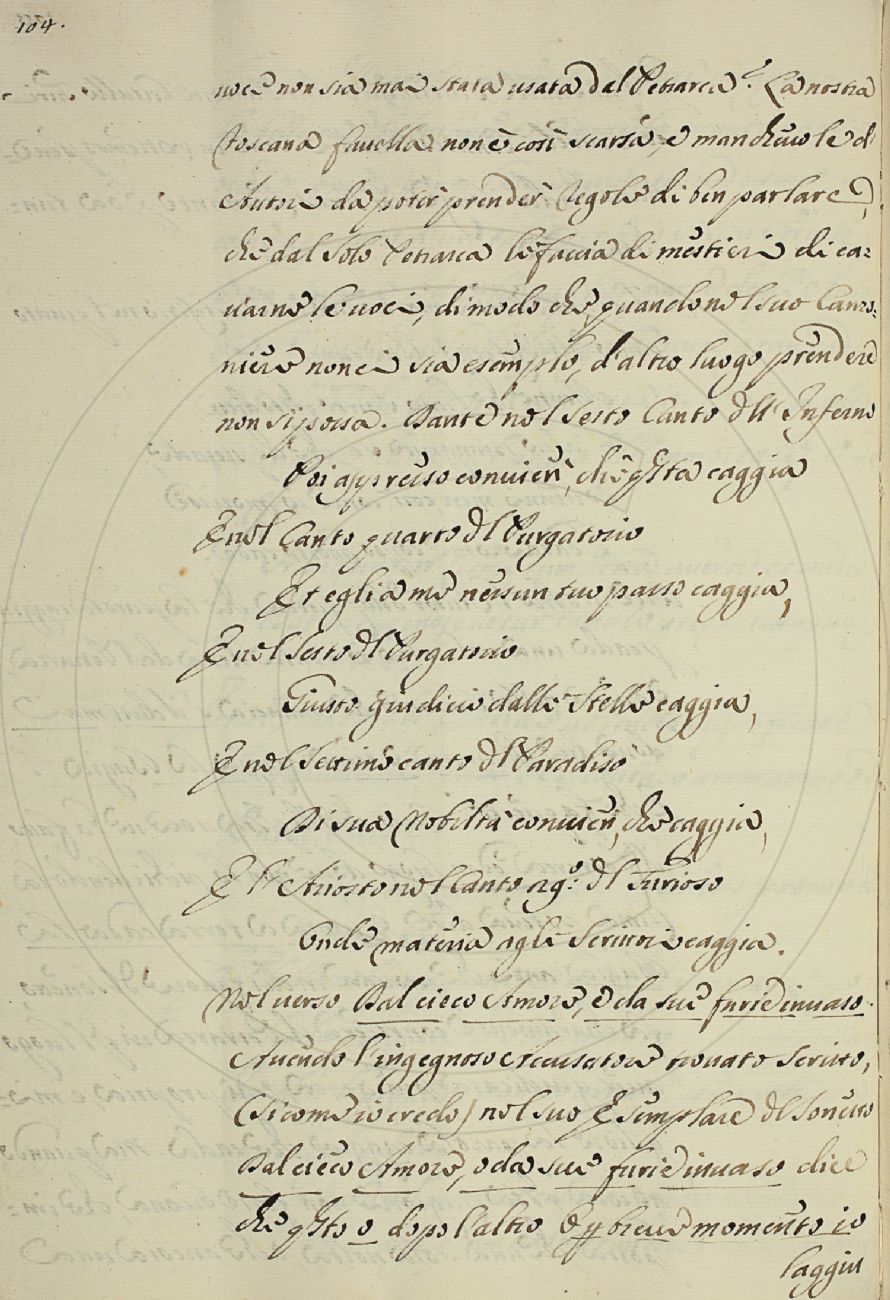 104.
uoce non sia mai stata usata dal Petrarca? La nostra
Toscana fauella non è così scarsa, e mancheuole d'
Autori da poter prender regole di ben parlare,
che dal solo Petrarca le faccia di mestieri di ca=
uarne le uoci, di modo che, quando nel suo Canzo:
niere non ci sia esempio, d'altro luogo prendere
non si possa. Dante nel sesto Canto dll' Inferno
Poi appresso conuien, che qsta caggia
E nel Canto quarto dl Purgatorio
Et egli a me nessun tuo passo caggia,
E nel sesto dl Purgatorio
Giusto giudicio dalle stelle caggia,
E nel settimo canto dl Paradiso
Di sua Nobiltà conuien, che caggia,
E l'Ariosto nel Canto 29º: dl Furioso
Onde materia agli scrittori caggia.
Nel uerso Dal cieco Amore, e da sue furie inuaso.
Auendo l'ingegnoso Accusatore trouato scritto,
(si come io credo) nel suo Esemplare dl sonetto
Dal cieco Amore, o da sue furie inuaso dice
che qsto o dopo l'altro O p breue momento io
caggia